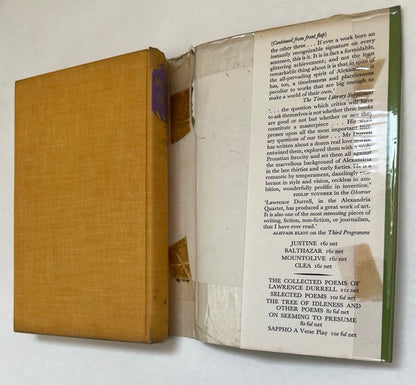 (Continued from front flap)
If ever a work bore an
instantly recognizable signature on every
sentence, this is it. It is in fact a formidable,
glittering achievement; and not the least
remarkable thing about it is that in spite of
the all-pervading spirit of Alexandria it
has, too, a timelessness and placelessness
peculiar to works that are big enough to
make a world of their own.'
The Times Literary Supplement
'. . . the question which critics will have
to ask themselves is not whether these books
are good or not but whether or not they
constitute a masterpiece . . .
presses upon all the most important
ary questions of our time . . . Mr Durrell
has written about a dozen real love stories,
entwined them, explored them with a
Proustian ferocity and set them all against
the marvellous background of Alexandria
in the late thirties and early forties. He is a
romantic by temperament, dazzlingly exu-
berant in style and vision, reckless in am-
bition, wonderfully prolific in invention.'
PHILIP TOYNBEE in the Observer
'Lawrence Durrell, in the Alexandria
Quartet, has produced a great work of art.
It is also one of the most interesting pieces of
writing, fiction, non-fiction, or journalism,
that I have ever read.'
ALISTAIR ELIOT on the Third Programme
JUSTINE 16s net
BALTHAZAR 16s net
MOUNTOLIVE 16s net
CLEA 16s net
THE COLLECTED POEMS OF
LAWRENCE DURRELL 21s net
SELECTED POEMS 10s 6d net
THE TREE OF IDLENESS AND
OTHER POEMS 8s 6d net
ON SEEMING TO PRESUME
8s 6d net
SAPPHO A Verse Play 10s 6d net